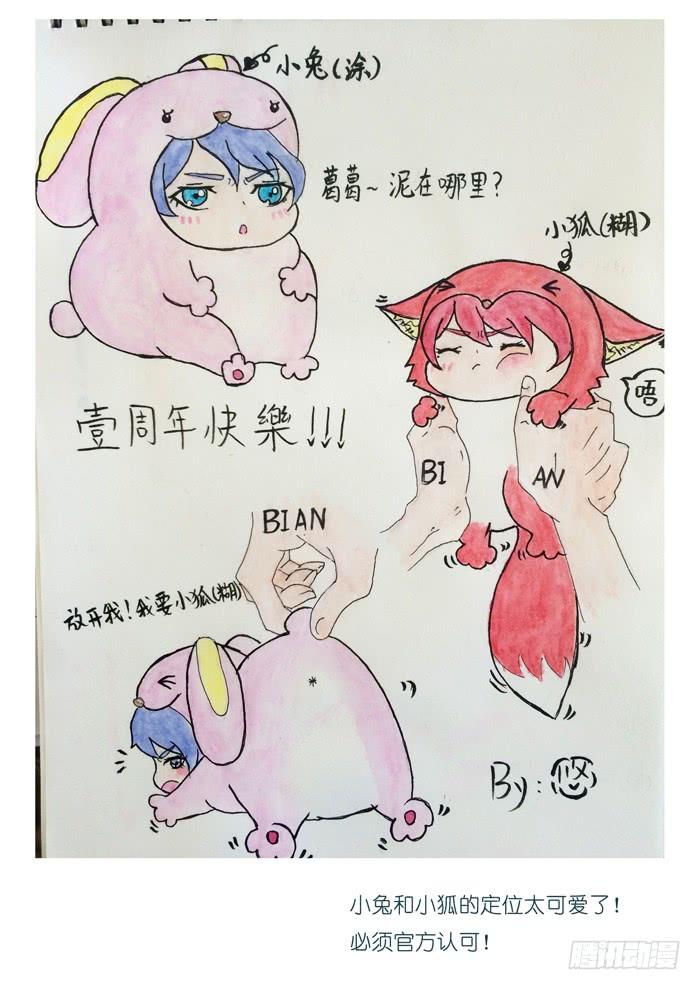 小兔(涂)
葛葛~泥在哪里?
小狐(糊)
唔
壹周年快樂!!!
BI
AN
BIAN
放开我!我要小狐(糊)
By:悠
小兔和小狐的定位太可爱了!
必须官方认可!
腾讯动漫